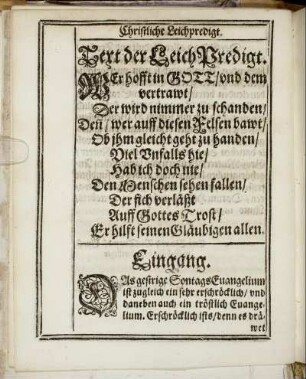 Christliche Leichpredigt.
Text der Leich Predigt.
WEr hofft in GOTT/ vnd dem
vertrawt/
Der wird nimmer zu schanden/
Deñ/ wer auff diesen Felsen bawt/
Ob jhm gleicht geht zu handen/
Viel Vnfalls hie/
Hab ich doch nie/
Den Menschen sehen fallen/
Der sich verläßt
Auff Gottes Trost/
Er hilft seinen Gläubigen allen.
Eingang.
DAs gestrige Sontags Euangelium
ist zugleich ein sehr erschröcklich/ vnd
daneben auch ein tröstlich Euange-
lium. Erschröcklich ists/ denn es drä-
wet